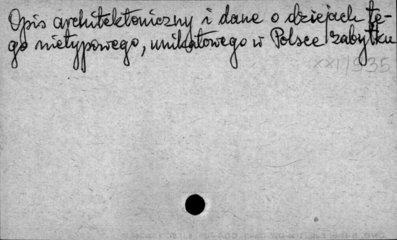 Opis architektoniczny i dane o dziejach te-
go nietypowego, unikatowego w Polsce zabytku
XXI 1935